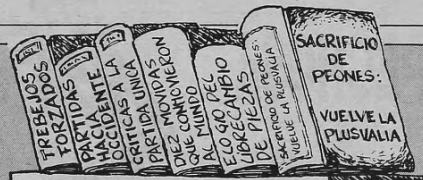 TREBEJOS
FORZADOS
PARTIDAS
HACIA
OCCIDENTE
CRITICAS A LA
PARTIDA UNICA
DIEZ MOVIDAS
QUE CONMOVIERON
AL MUNDO
ELOGIO DEL
LIBRECAMBIO
DE PIEZAS
SACRIFICIO DE PEONES:
VUELVE LA PLUSVALIA
SACRIFICIO
DE
PEONES:
VUELVE LA
PLUSVALIA